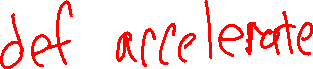 def accelerate